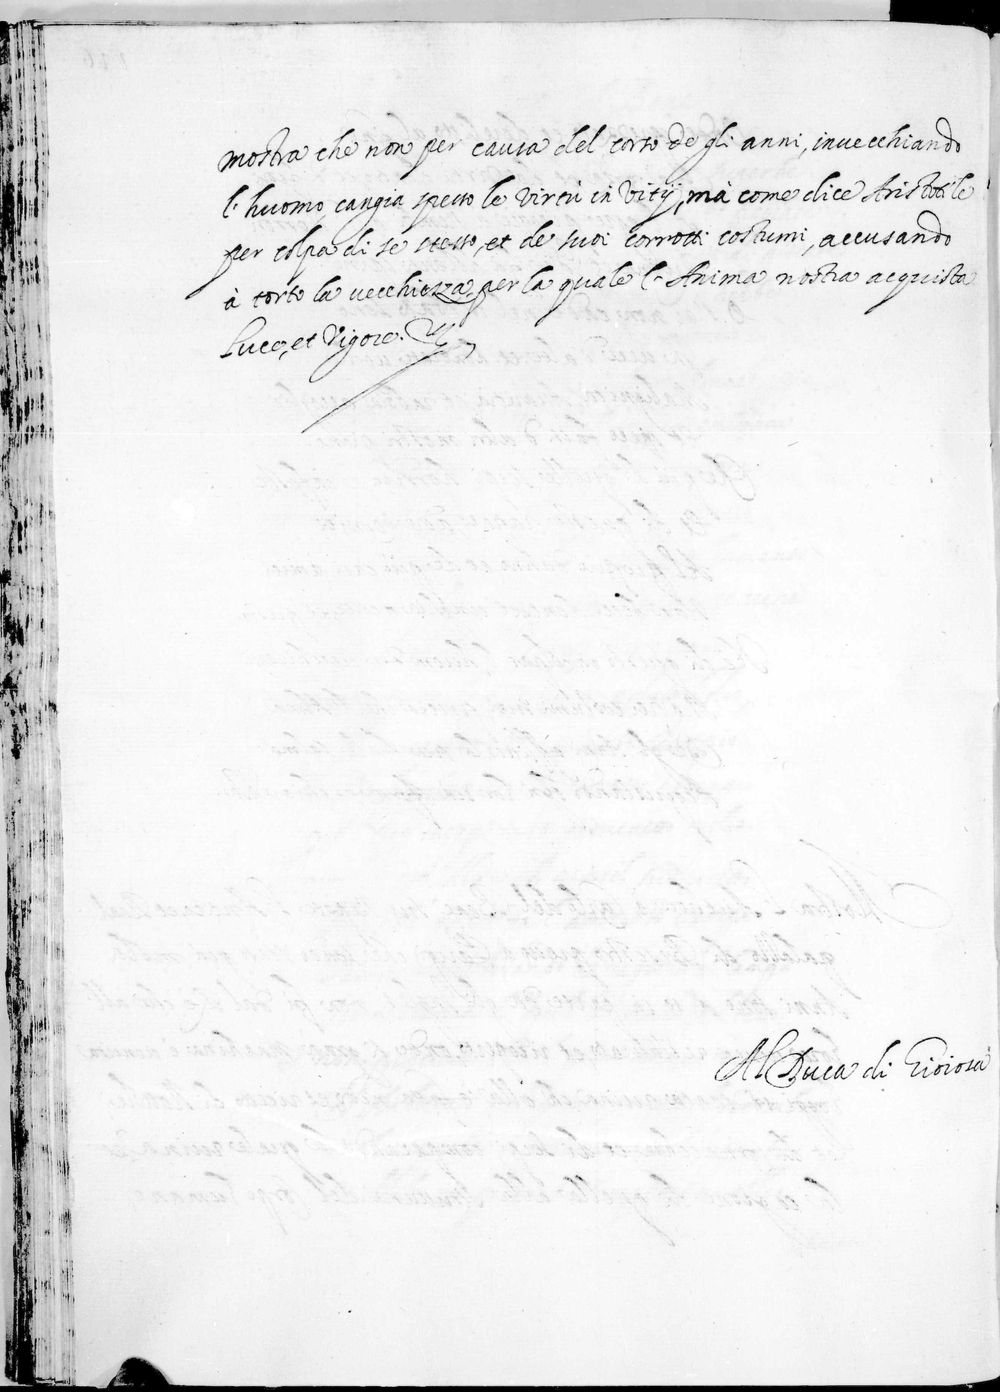 mostra che non per causa del corso de gli anni, invecchiando
l'huomo, cangia spesso le virtù in vitij, mà come dice Aristotile
per colpa di se stesso, et de suoi corrotti costumi, accusando
à torto la vecchiezza, per la quale l'Anima nostra acquista
luce, et vigore.
Al Duca di Gioiosa